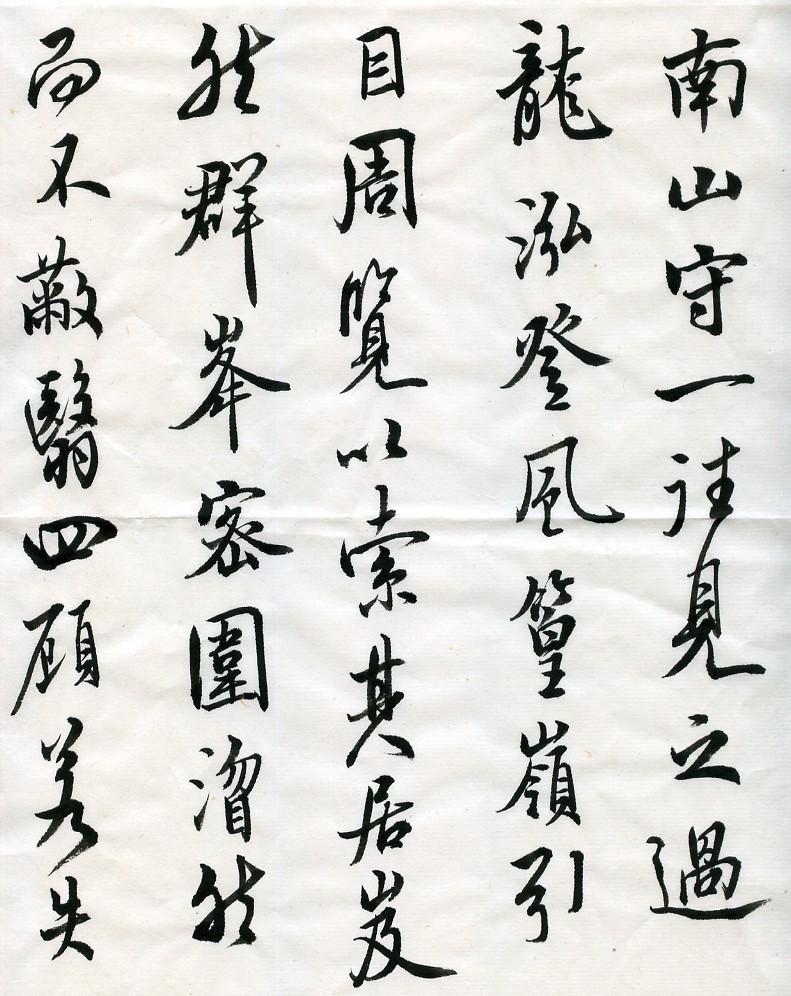 南山守一往見之過
龍泓登風篁嶺引
目周覽以索其居岌
然群峯密圍溜然
而不蔽翳四顧若失